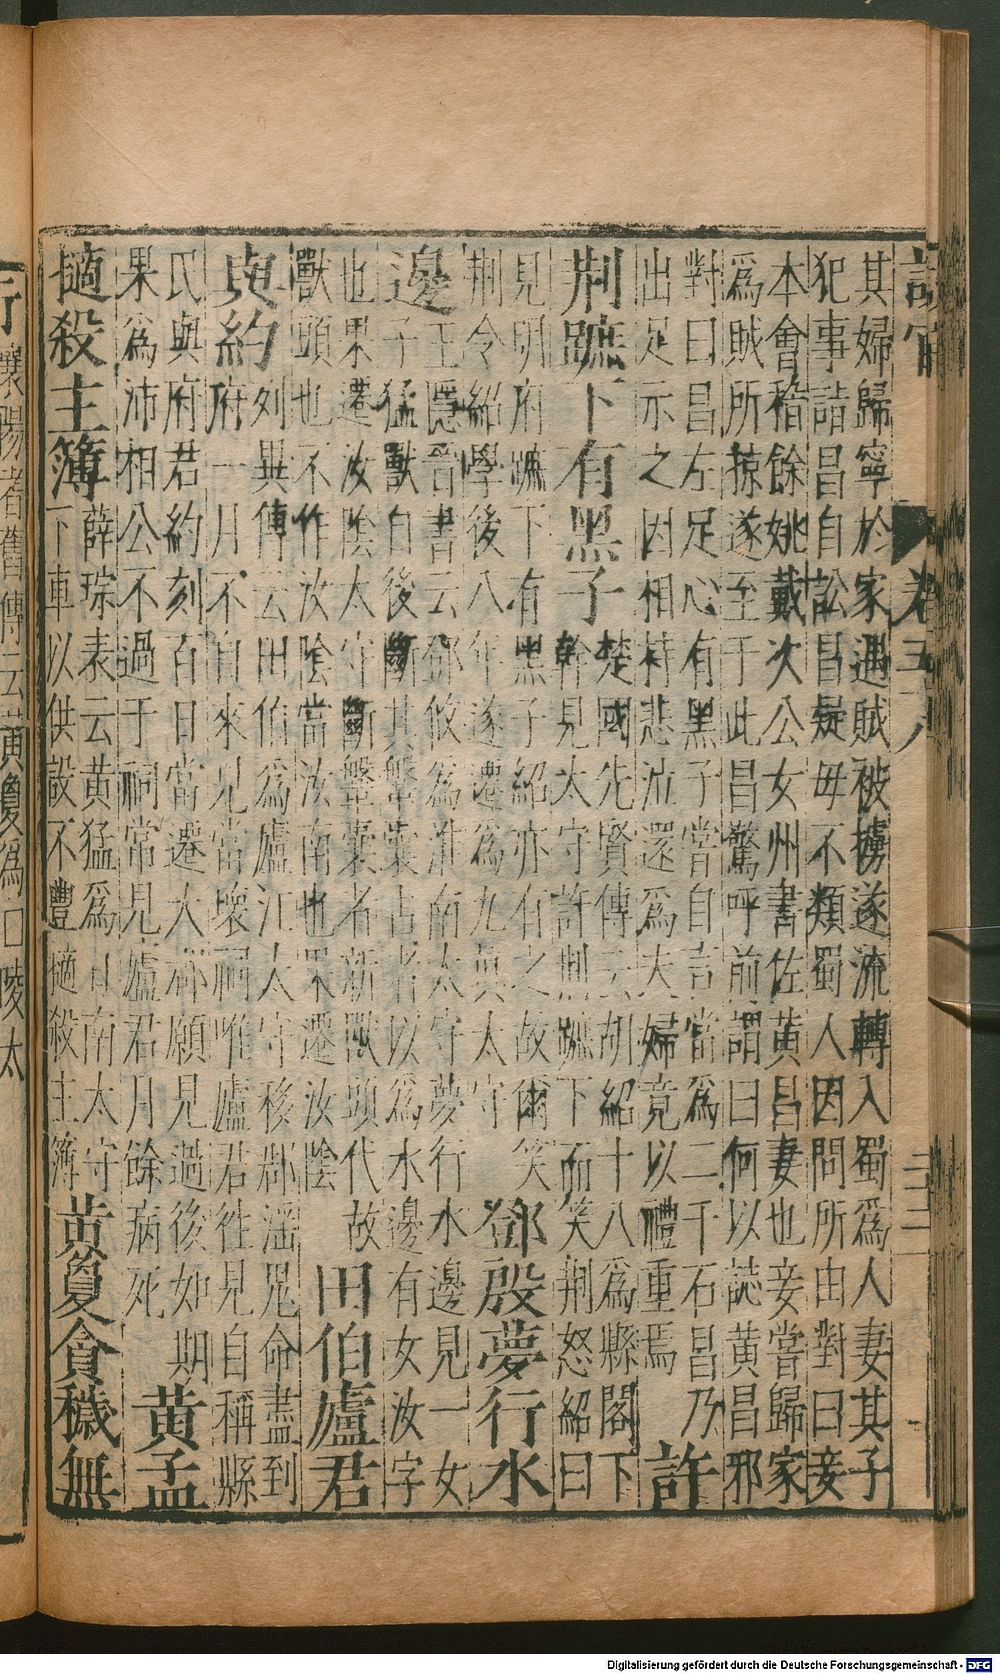 其婦歸寧於家遇賊被擄遂流轉入蜀爲人妻其子
犯事詣昌自訟昌疑毋不類蜀人因問所由對曰妾
本會稽餘姚戴次公女州書佐黃昌妻也妾嘗歸家
爲賊所掠遂至于此昌驚呼前謂曰何以誌黃昌邪
對曰昌左足心有黑子嘗自言當爲二千石昌乃
出足示之因相持悲泣還爲夫婦竟以禮重焉
許
荆蹠下有黑子
楚國先賢傳云胡紹十八爲縣閣下
幹見太守許荆蹠下而笑荆怒紹曰
見明府蹠下有黑子紹亦有之故爾笑
荆令紹學後八年遂遷爲九真太守
鄧殷夢行水
邊
王隱晉書云鄧攸爲淮南太守夢行水邊見一女
子猛獸自後斷其盤囊占者以爲水邊有女汝字
也果遷汝陰太守斷盤囊者新獸頭代故
獸頭也不作汝陰當汝南也果遷汝陰
田伯廬君
與約
列異傳云田伯爲廬江太守移郡淫鬼命盡到
府一月不自來見當壞祠唯廬君往見自稱縣
民與府君約刻百日當遷大郡願見過後如期
果爲沛相公不過于祠常見廬君月餘病死
黃孟
擿殺主簿
薛琮表云黃猛爲日南太守
下車以供設不豐擿殺主簿
黃敻貪穢無
行
襄陽耆舊傳云黃敻爲口陵太
卷五十八
三二
Digitalisierung gefördert durch die Deutsche Forschungsgemeinschaft - DFG